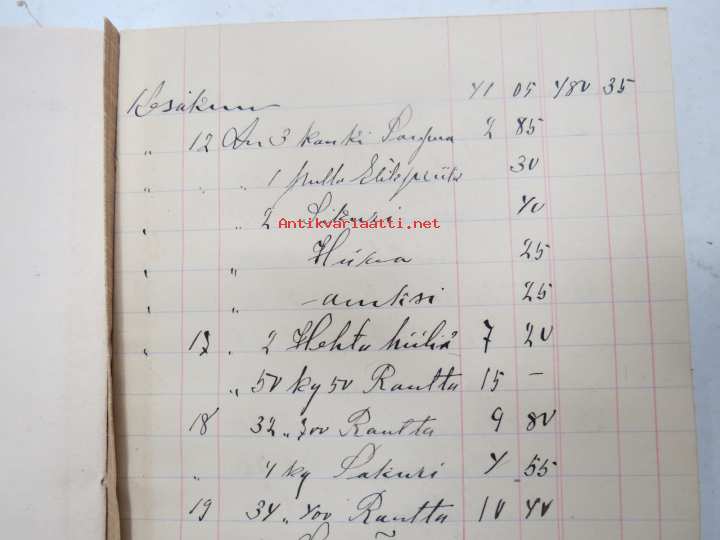 Kesäkuu 41 05 480 35
" 12 An 3 kanki Saipua 2 85
" " " 1 pullo 30
" " 2 Sikuri 40
Antikvariaatti.net
" " Hiiwa 25
" " 25
" 17 " 2 Hehto hiiliä 7 20
" 50 kg 50 Rautta 15 –
18 32 " 700 Rautta 9 80
" 4 kg Sokuri 4 55
19 34 " 400 Rautta 10 40